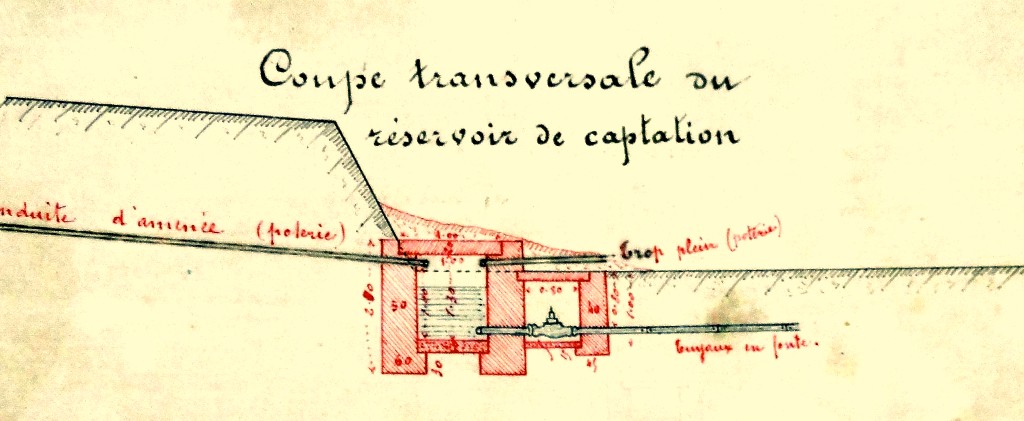 Coupe transversale du
réservoir de captation
nduite d'amenée (poterie)
Trop plein (poterie)
1.00
50
0.50
40
60
30
45
Tuyaux en fonte.